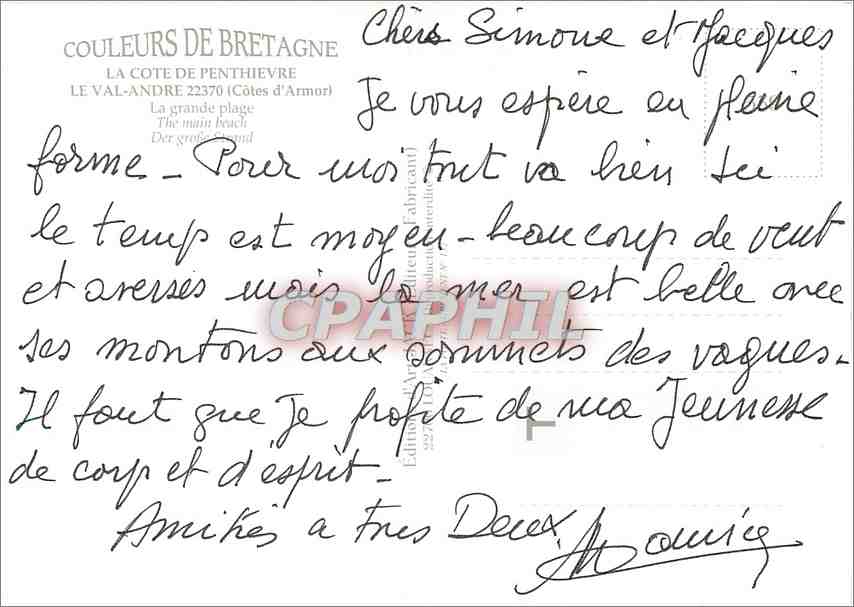 COULEURS DE BRETAGNE
LA COTE DE PENTHIEVRE
LE VAL-ANDRE 22370 (Côtes d'Armor)
La grande plage
The main beach
Der große Strand
Chers Simone et Jacques
Je vous espère en pleine
forme - Pour moi tout va bien Ici
le temps est moyen - beaucoup de vent
et averses mais la mer est belle avec
ses moutons aux sommets des vagues -
Il faut que je profite de ma Jeunesse
de corp et d'esprit -
Amitiés a tres Deux
CPAPHIL